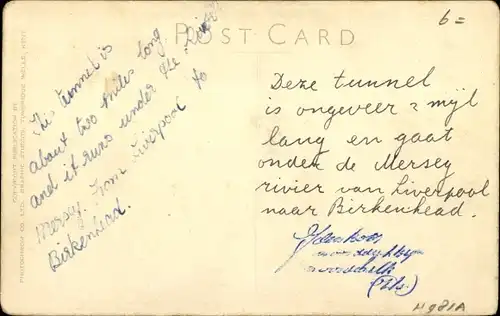 POST CARD
6=
This tunnel is
about two miles long
and it runs under the River
Mersey. From Liverpool to
Birkenhead.
Deze tunnel
is ongeveer 2 mijl
lang en gaat
onder de Mersey
rivier van Liverpool
naar Birkenhead.
H981A
PHOTOCHROM CO. LTD. GRAPHIC STUDIOS, TUNBRIDGE WELLS, KENT
COPYRIGHT PUBLICATION BY